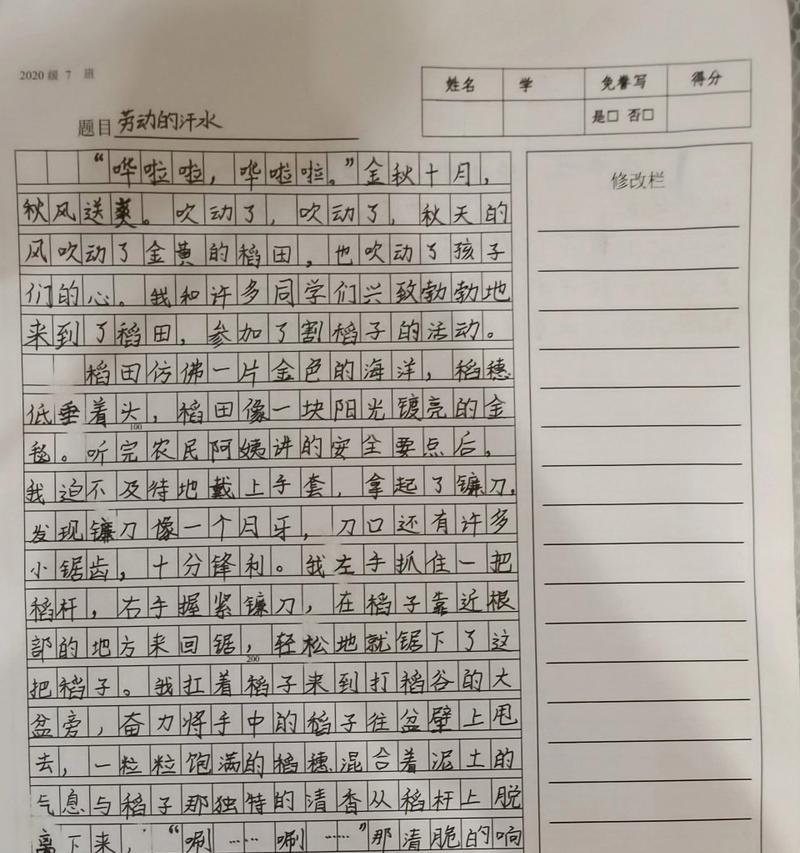 2020级 7 班
姓名 学 免誊写 得分
是□ 否□
题目 劳动的汗水
修改栏
“哗啦啦，哗啦啦。”金秋十月，
秋风送爽。吹动了，吹动了，秋天的
风吹动了金黄的稻田，也吹动了孩子
们的心。我和许多同学们兴致勃勃地
来到了稻田，参加了割稻子的活动。
稻田仿佛一片金色的海洋，稻穗
低垂着头，稻田像一块阳光镀亮的金
100
毯。听完农民阿姨讲的安全要点后，
我迫不及待地戴上手套，拿起了镰刀，
发现镰刀像一个月牙，刀口还有许多
小锯齿，十分锋利。我左手抓住一把
稻杆，右手握紧镰刀，在稻子靠近根
部的地方来回锯，轻松地就锯下了这
200
把稻子。我扛着稻子来到打稻谷的大
盆旁，奋力将手中的稻子往盆壁上甩
去，一粒粒饱满的稻穗混合着泥土的
气息与稻子那独特的清香从稻杆上脱
离下来，“唰……唰……”那清脆的响